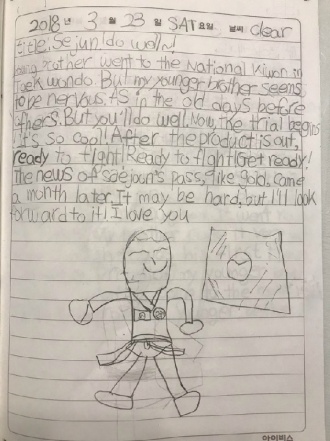 2018년 3월 23일 SAT요일 날씨 clear
title, Sejun! do well~!
brother went to the National Kiwon in
Taekwondo. But my younger brother seems
to be nervous. As in the old days before
others. But you'll do well. Now, the trial begins
it's so cool! After the product is out,
ready to fight! Ready to fight! Get ready!
The news of saejoun's pass, like gold, came
a month later. It may be hard, but I'll look
forward to it! I love you
아이비스